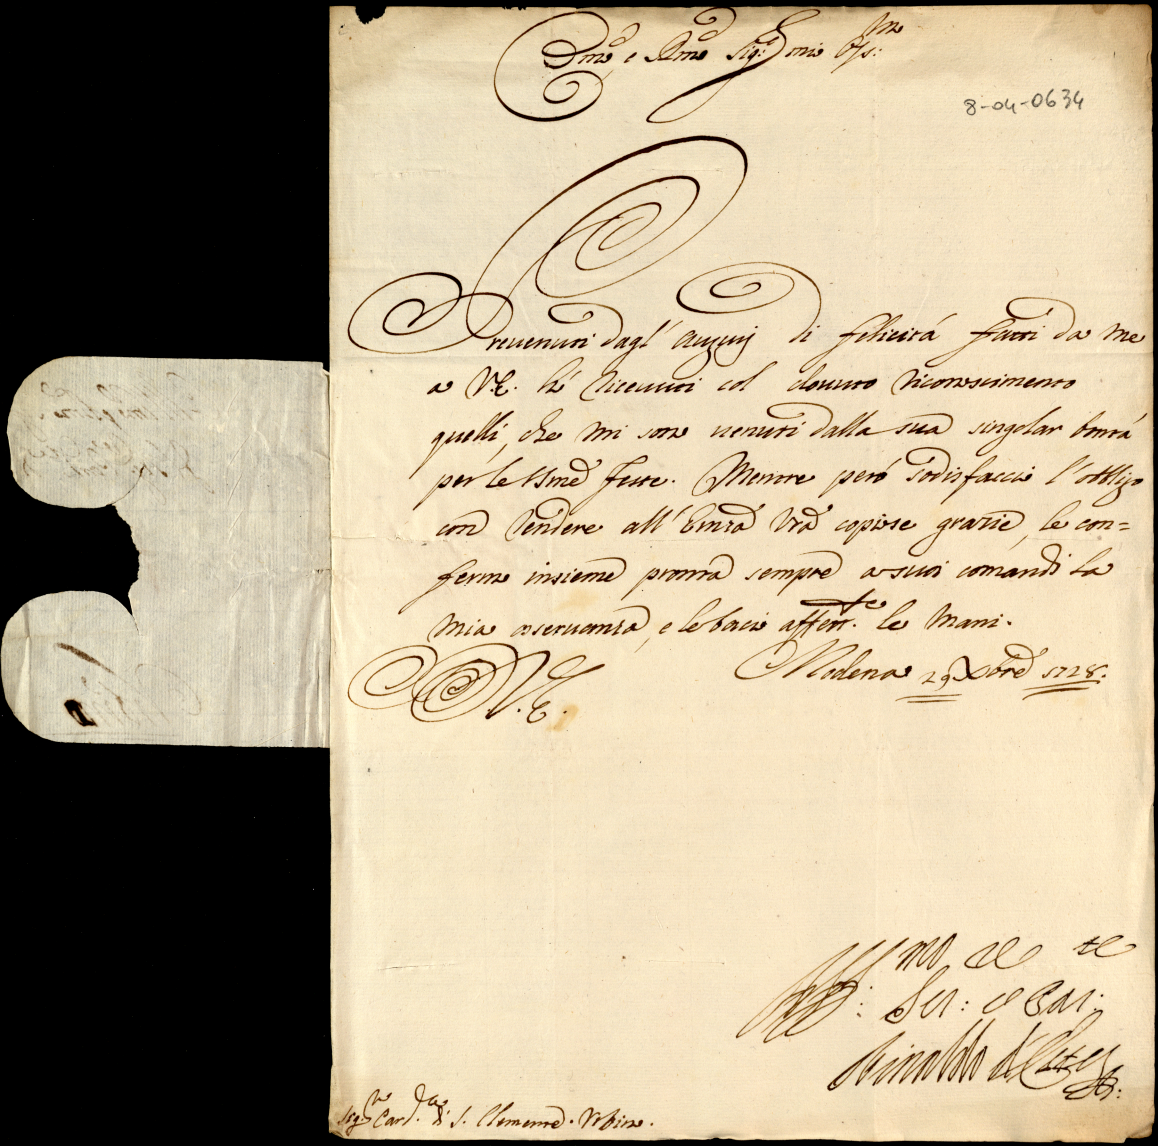 Em̃o, e Rm̃o Sig:re mio Oss:mo
8-04-0634
Prevenuti dagl' augurij di felicità fatti da me
a V.E. hò ricevuti col dovuto riconoscimento
quelli, che mi son venuti dalla sua singolar bontà
per le Sme Feste. Mentre però sodisfaccio l'obbligo
con rendere all' Emza Vra copiose grazie, le con=
fermo insieme pronta sempre a suoi comandi la
mia osservanza, e le bacio affett.te le mani.
Modena 29 Xbre 1728.
V.E.
Aff:mo de te
Ser: e Par:
Rinaldo d'Este
Sigr Card.le di S. Clemente. Urbino.